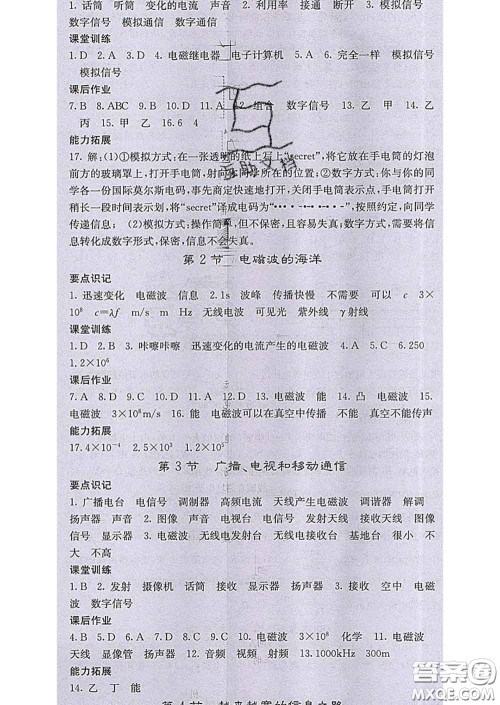 1. 话筒 听筒 变化的电流 声音 2. 利用率 接通 断开 3. 模拟信号
数字信号 模拟通信 数字通信
课堂训练
1. D 2. A 3. D 4. 电磁继电器 电子计算机 5. A 6. 完全一样 模拟信号
模拟信号
课后作业
7. B 8. ABC 9. B 10. D 11. A 12. 组合 数字信号 13. 乙 14. 乙
丙 15. 甲 乙 16. 6 4
能力拓展
17. 解:(1)①模拟方式:在一张透明的纸上写上“secret”,将它放在手电筒的灯泡
前方的玻璃罩上,打开手电筒,射向同学所在的位置;②数字方式:你与你的同
学各一份国际莫尔斯电码,事先商定快速地打开、关闭手电筒表示点,手电筒打开
稍长一段时间表示划,将“secret”译成电码为“”,按照约定,向同学
传递信息; (2)模拟方式:操作简单,但不保密,且容易失真;数字方式:需要将信
息转化成数字形式,保密,信息不会失真。
第 2 节 电磁波的海洋
要点识记
1. 迅速变化 电磁波 信息 2. 1s 波峰 传播快慢 不需要 可以 c 3×
10⁸ c=λf m/s m Hz 无线电波 可见光 紫外线 γ射线
课堂训练
1. D 2. B 3. 咔嚓咔嚓 迅速变化的电流产生的电磁波 4. A 5. C 6. 250
1. 2×10⁶
课后作业
7. A 8. D 9. B 10. C 11. A 12. D 13. 电磁波 能 14. 凸 电磁波 15.
电磁波 3×10⁸m/s 16. 能 电磁波可以在真空中传播 不能 真空不能传声
能力拓展
17. 4×10⁻⁴ 2. 5×10³ 1. 2×10⁵
第 3 节 广播、电视和移动通信
要点识记
1. 广播电台 电信号 调制器 高频电流 天线产生电磁波 调谐器 解调
扬声器 声音 2. 图像 声音 电视台 电信号 发射天线 接收天线 图像
信号 显示器 3. 电磁波 无线电发射台 无线电接收台 基地台 很小 不
大 不高
课堂训练
1. B 2. 发射 摄像机 话筒 接收 显示器 扬声器 3. 接收 空中 电磁
波 数字信号
课后作业
4. B 5. D 6. A 7. D 8. C 9. C 10. D 11. 电磁波 3×10⁸ 化学 12. 电磁波
天线 显像管 扬声器 音频 视频 射频 13. 1000kHz 300m
能力拓展
14. 乙 丁 能
第 4 节 越来越宽的信息之路
答案圈
MXQE.COM